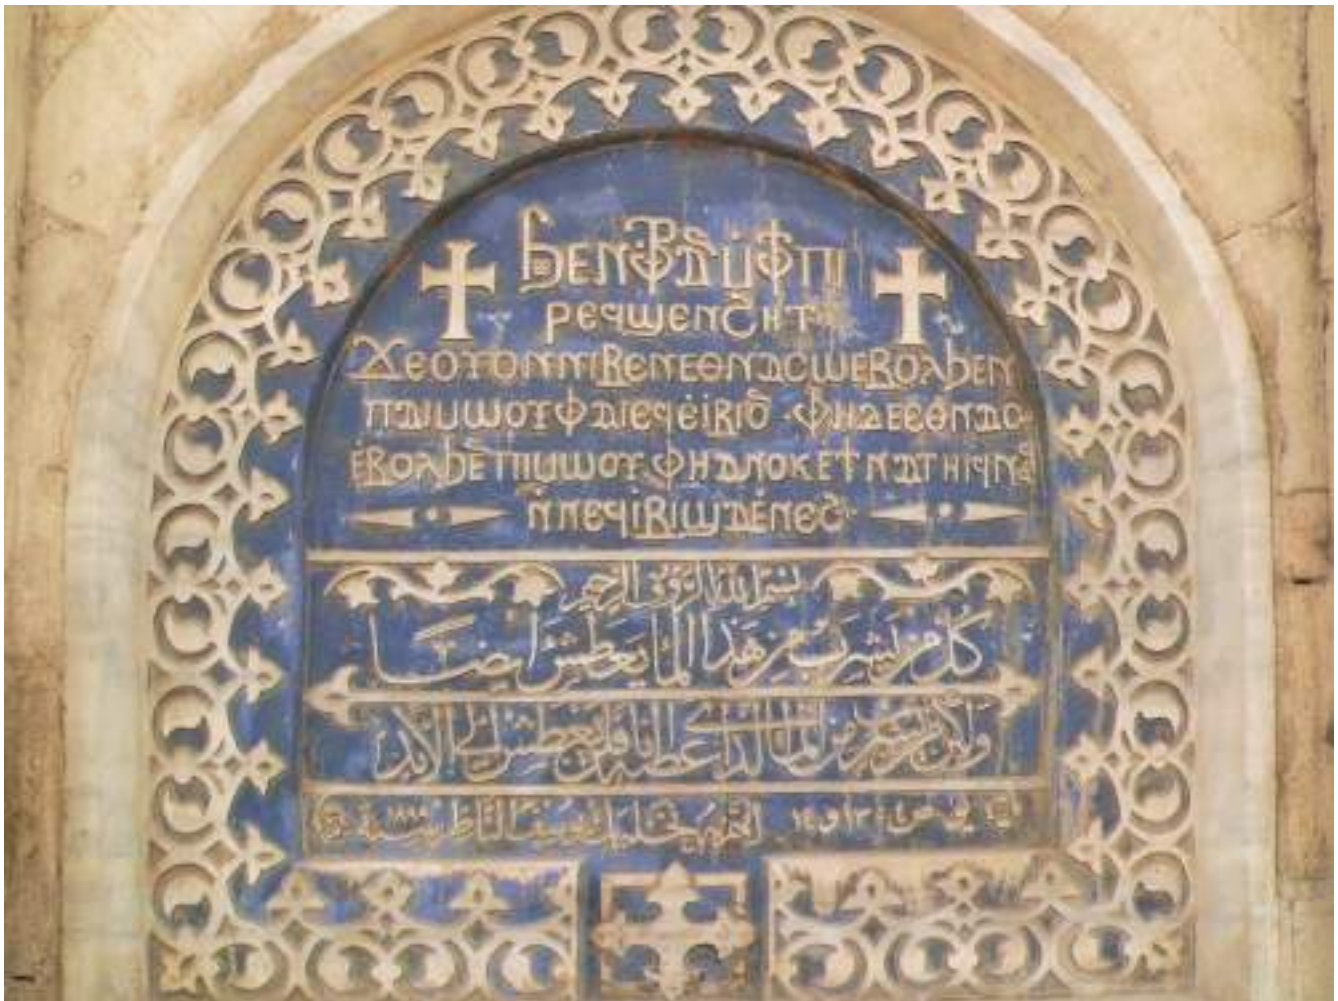 ϧⲉⲛⲫⲣⲁⲛ̅ⲙ̀ⲫϯⲡⲓ
ⲣⲉϥϣⲉⲛϩⲏⲧ
ϫⲉⲟⲩⲟⲛⲛⲓⲃⲉⲛⲉⲑⲛⲁⲥⲱⲉⲃⲟⲗϧⲉⲛ
ⲡⲁⲓⲙⲱⲟⲩⲫⲁⲓⲉϥⲉ̀ⲓⲃⲓⲟⲛ ⲫⲏⲇⲉⲉⲑⲛⲁⲥⲱ
ⲉ̀ⲃⲟⲗϧⲉⲛⲡⲓⲙⲱⲟⲩⲫⲏⲁⲛⲟⲕⲉϯⲛⲁⲧⲏⲓϥⲛⲁϥ
ⲛ̀ⲛⲉϥⲓ̀ⲃⲓϣⲁⲉ̀ⲛⲉϩ
بسم الله الرؤوف الرحيم
كل من يشرب من هذا الما يعطش ايضا
ولكن من يشرب من الما الذي اعطيه انا فلن يعطش الى الابد